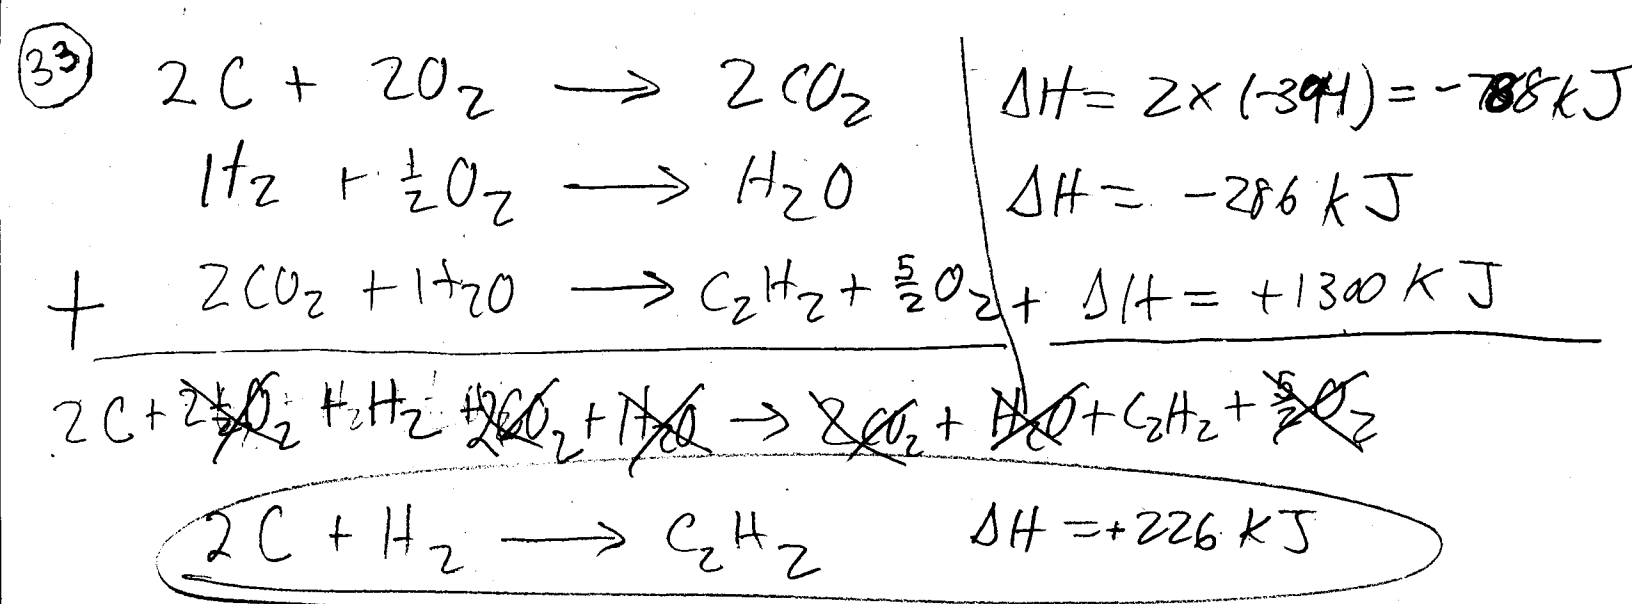 33 2C + 2O₂ → 2CO₂ ΔH = 2x (-394) = -788 kJ
H₂ + ½O₂ → H₂O ΔH = -286 kJ
+ 2CO₂ + H₂O → C₂H₂ + 5/2 O₂ + ΔH = +1300 KJ
2C + 2½O₂ + H₂ + 2CO₂ + H₂O → 2CO₂ + H₂O + C₂H₂ + 5/2 O₂
2C + H₂ → C₂H₂ ΔH = +226 KJ